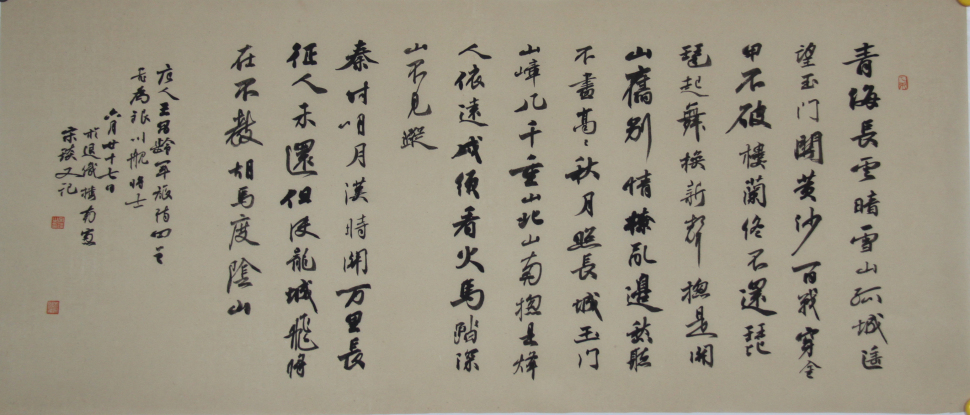 青海長雲暗雪山孤城遥
望玉门関黄沙百戰穿金
甲不破樓蘭终不還琵
琶起舞换新聲揔是関
山舊别情撩亂邊愁聽
不盡高々秋月照長城玉门
山嶂几千重山北山南揔是烽
人依遠戍須看火馬踏深
山不見蹤
秦时明月漢時関万里長
征人未還但使龍城飛將
在不教胡馬度陰山
人王昌齡軍旅诗四
六月廿十七日
又记